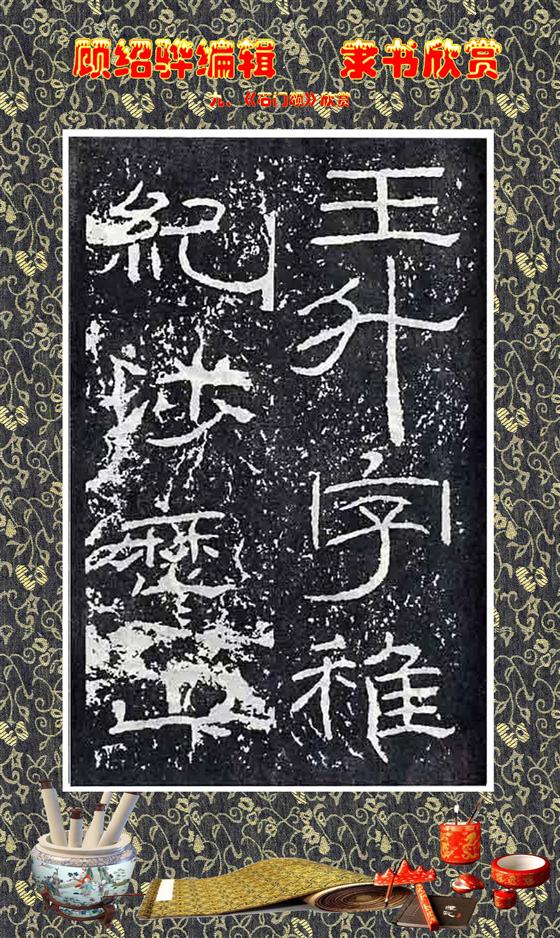 顾绍骅编辑 隶书欣赏
九、《石门颂》欣赏
王升字稚
紀涉歷山